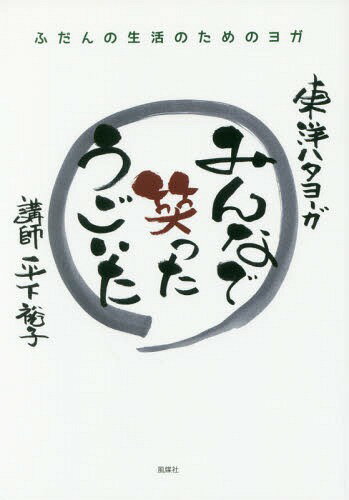 ふだんの生活のためのヨガ
東洋ハタヨーガ
みんなで
笑った
うごいた
講師 平下裕子
風媒社